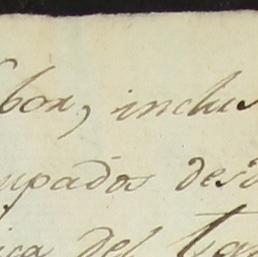 box, inclus
upados desd
ica del ta